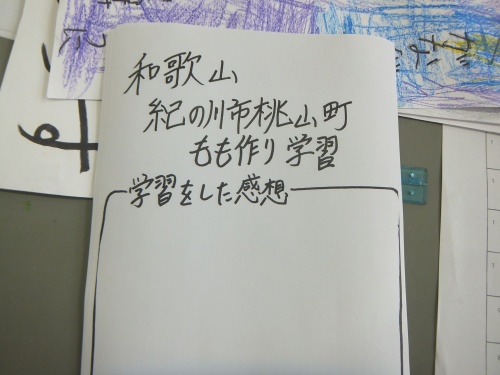 和歌山
紀の川市桃山町
もも作り学習
学習をした感想
す